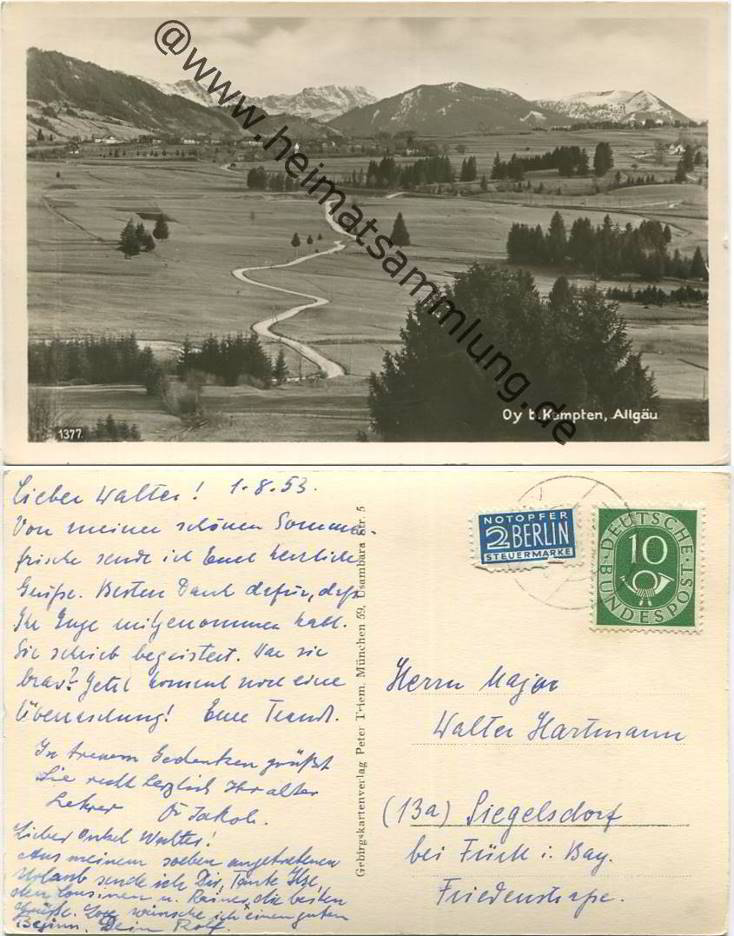 @www.heimatsammlung.de
1377
Oy b. Kempten, Allgäu
Lieber Walter! 1.8.53.
Von meiner schönen Sommer-
frische sende ich Euch herzliche
Grüße. Besten Dank dafür, daß
Ihr Inge mitgenommen habt.
Sie schrieb begeistert. War sie
brav? Jetzt kommt noch eine
Überraschung! Eure Traudl.
In treuem Gedenken grüßt
Sie recht herzlich Ihr alter
Lehrer Jakob.
Lieber Onkel Walter!
Aus meinem soeben angetretenen
Urlaub sende ich Dir, Tante Ilse,
den Cousinen u. Rainer die besten
Grüße. wünsche ich einen guten
Beginn. Dein Rolf.
Gebirgskartenverlag Peter Triem, München 59, Usambara Str. 5
NOTOPFER
2 BERLIN
STEUERMARKE
DEUTSCHE
10
BUNDESPOST
Herrn Major
Walter Hartmann
(13a) Siegelsdorf
bei Fürth i. Bay.
Friedenstraße.